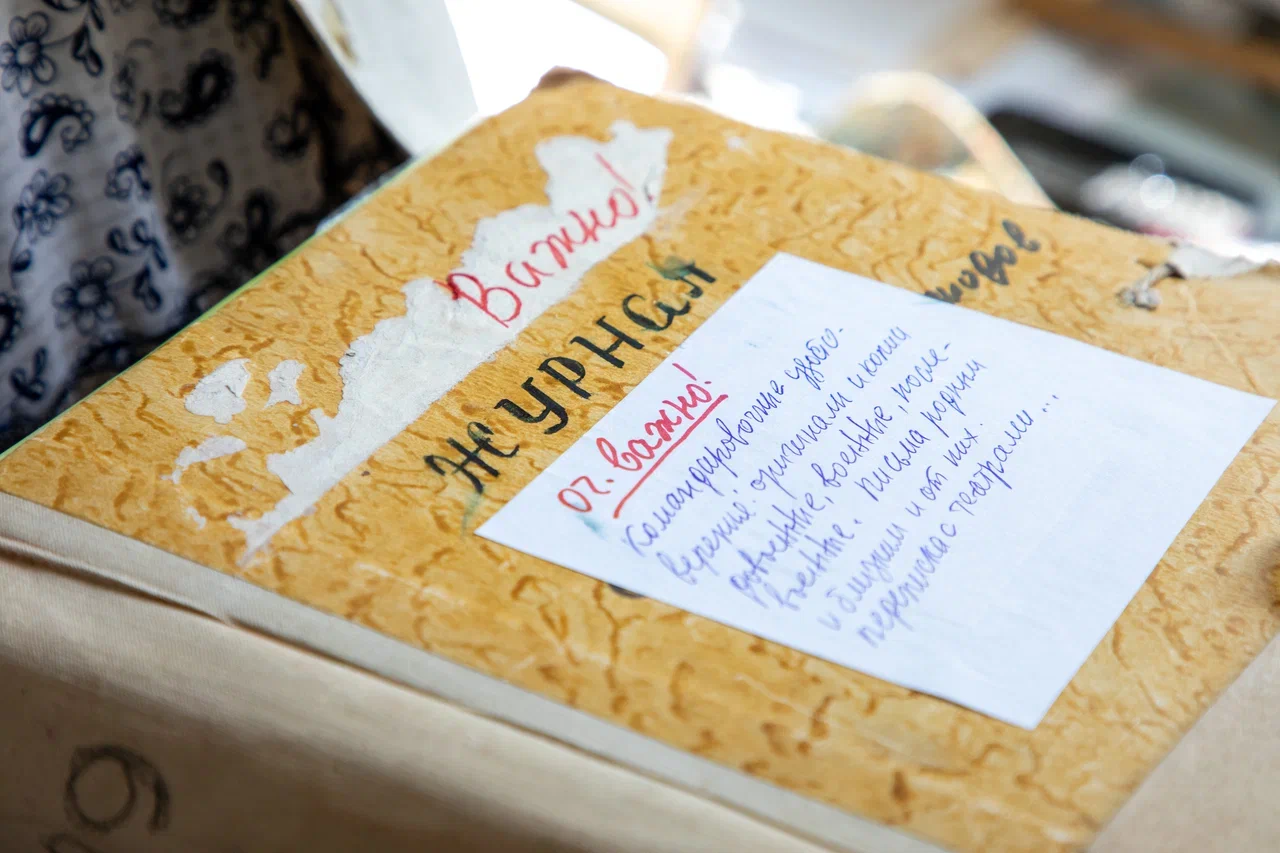 Важно!
Журнал
оч. важно!
Командировочные удосто-
верения: оригиналы и копии
довоенные, военные, после-
военные. Письма родным
и близким и от них.
переписка с театрами ...